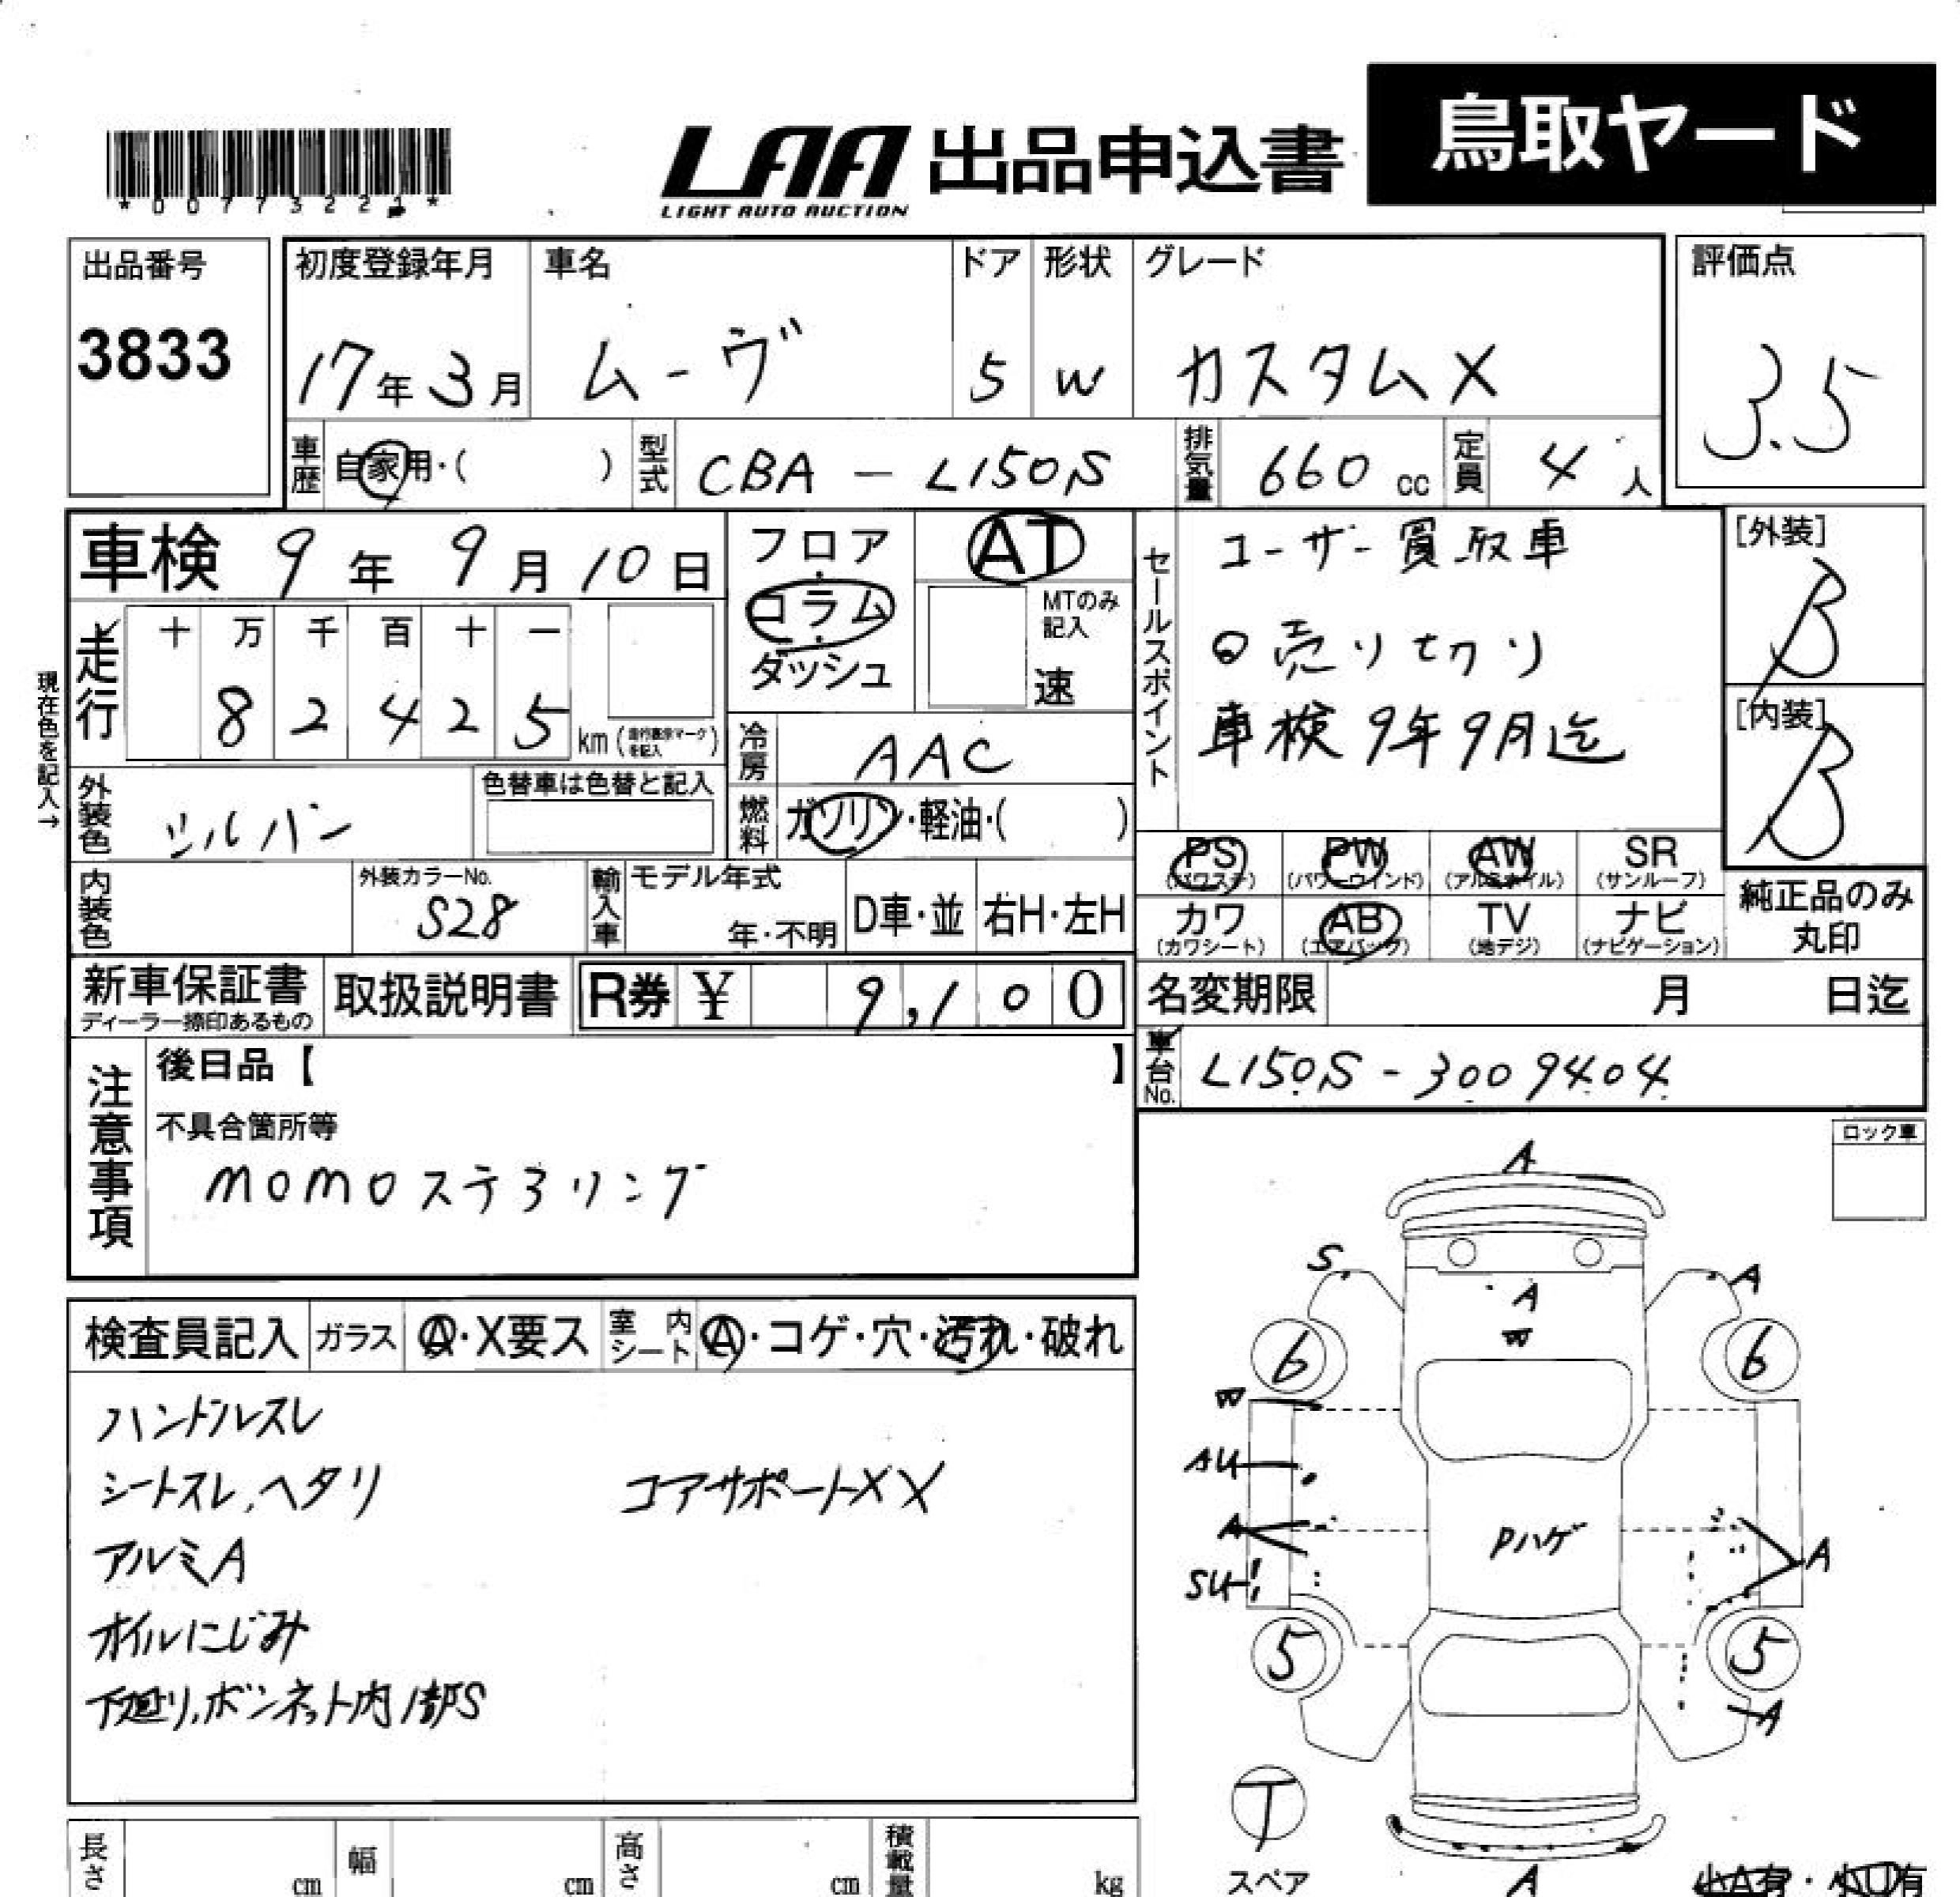 *00773221*
LAA 出品申込書 鳥取ヤード
LIGHT AUTO AUCTION
出品番号
3833
初度登録年月 車名 ドア 形状 グレード
17年3月 ムーヴ 5 W カスタムX
評価点
3.5
車歴 自家用・( ) 型式 CBA-L150S 排気量 660cc 定員 4人
車検 9年9月10日
フロア・コラム・ダッシュ
AT
MTのみ記入
速
現在色を記入→
走行 十 万 千 百 十 一
8 2 4 2 5 km (走行表示マークを記入)
冷房 AAC
外装色 シルバン
色替車は色替と記入
燃料 ガソリン・軽油・( )
内装色
外装カラーNo.
S28
輸入車 モデル年式
年・不明 D車・並 右H・左H
セールスポイント
ユーザー買取車
◎売り切り
車検9年9月迄
[外装]
B
[内装]
B
PS PW AW SR
(パワステ) (パワーウインド) (アルミホイル) (サンルーフ)
カワ AB TV ナビ
(カワシート) (エアバッグ) (地デジ) (ナビゲーション)
純正品のみ
丸印
新車保証書
ディーラー捺印あるもの
取扱説明書 R券 ¥ 9,100
名変期限 月 日迄
車台No. L150S-3009404
注意事項
後日品【 】
不具合箇所等
MOMOステヨリング
ロック車
検査員記入 ガラス A・X要ス 室内シート A・コゲ・穴・汚れ・破れ
ハンドルスレ
シートスレ,ヘタリ コアサポートXX
アルミA
オイルにじみ
下廻り,ボンネット内1部S
A
S A
A
W
6 6
W
AU
A
Pハゲ
A
SU
5 5
A
T
スペア
A
小A有・小U有
長さ cm 幅 cm 高さ cm 積載量 kg